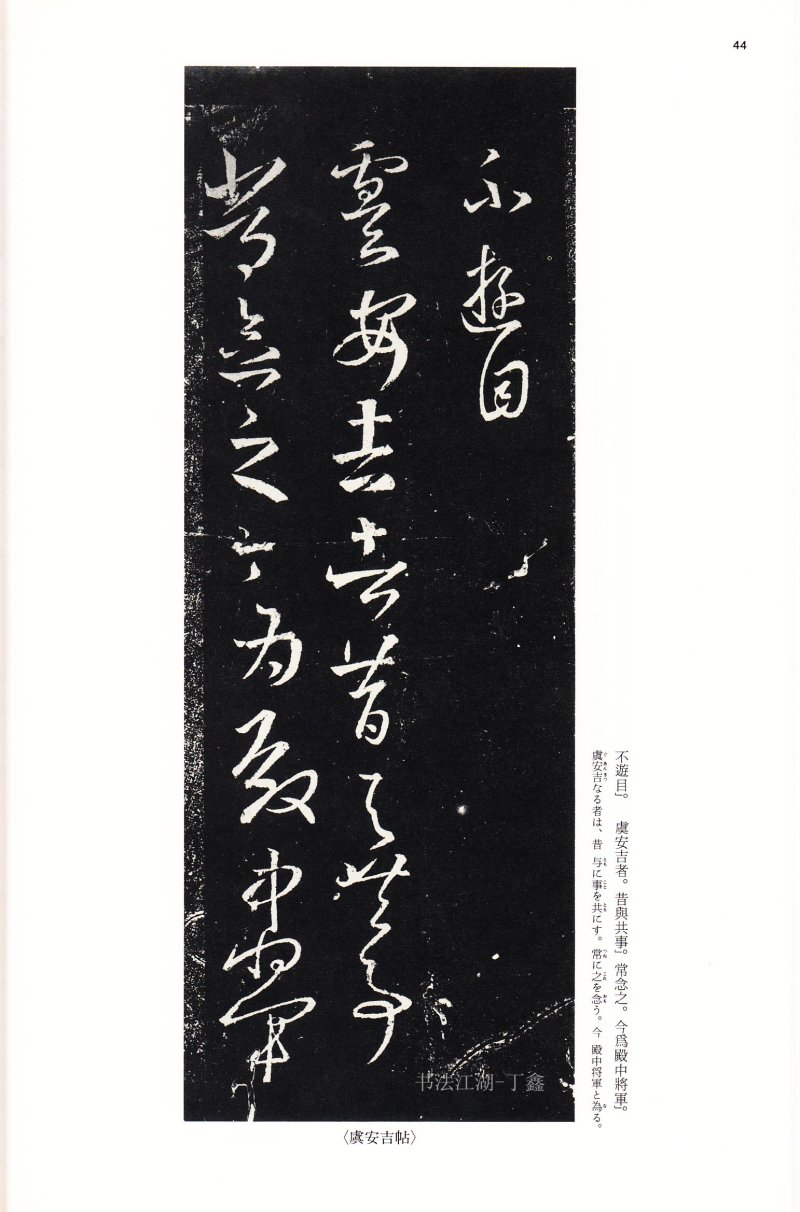 44
不遊目
虞安吉者昔與共事
常念之今為殿中將軍
不遊目』。　虞安吉者。昔與共事』。常念之。今爲殿中將軍』。
虞安吉なる者は、昔 与に事を共にす。常に之を念う。今 殿中将軍と為る。
书法江湖-丁鑫
〈虞安吉帖〉